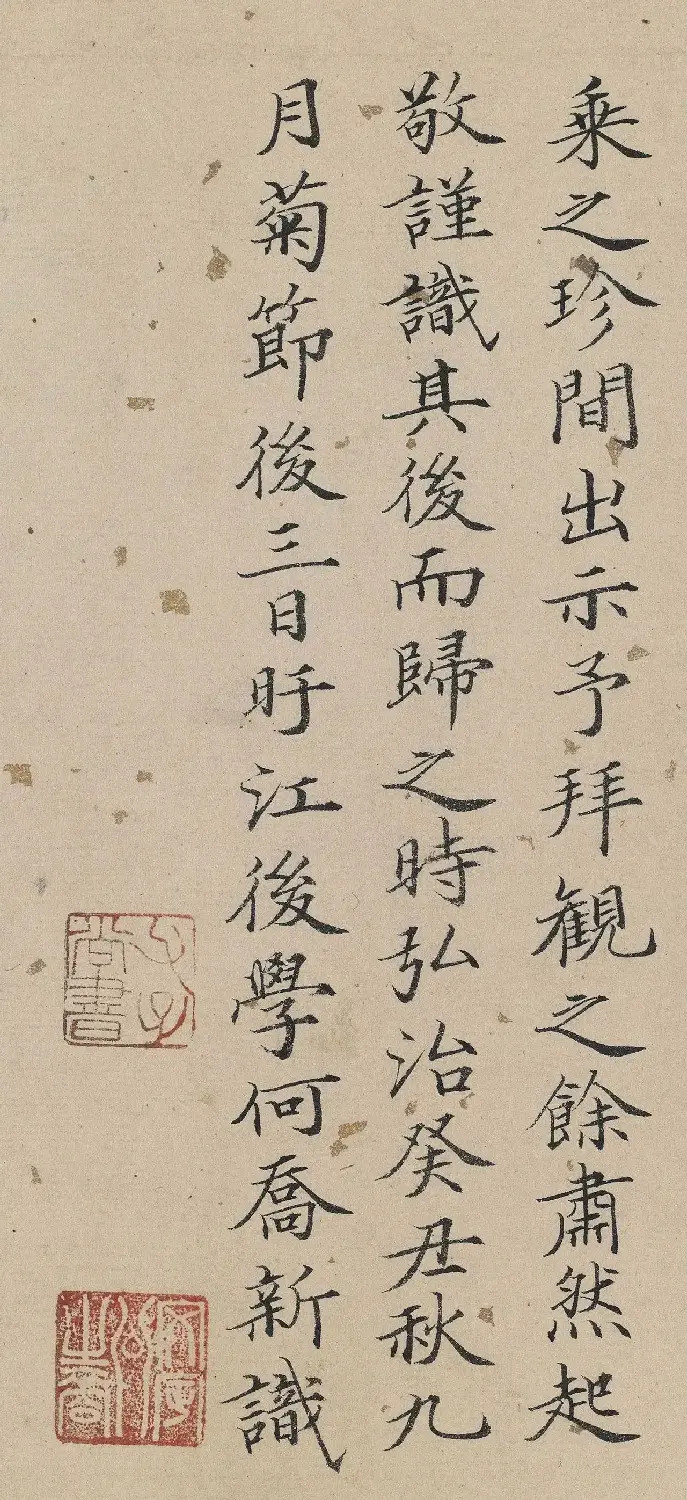 乘之珍間出示予拜觀之餘肅然起
敬謹識其後而歸之時弘治癸丑秋九
月菊節後三日盱江後學何喬新識
尚書